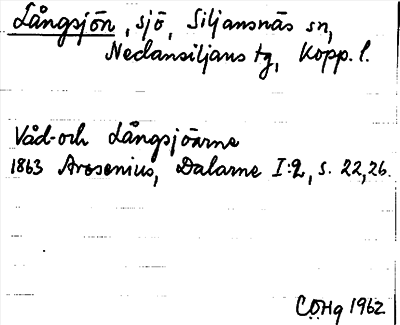 Långsjön, sjö, Siljansnäs sn,
Nedansiljans tg, Kopp. l.
Våd- och Långsjöarne
1863 Arosenius, Dalarne I:2, s. 22, 26.
CÖHg 1962